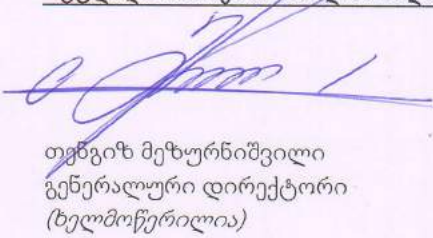 თენგიზ მეზურნიშვილი
გენერალური დირექტორი
(ხელმოწერილია)